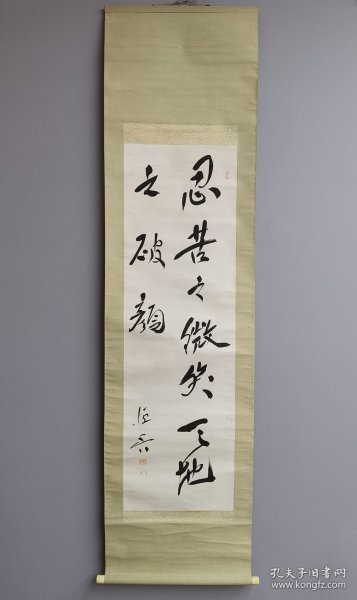 忍苦之微笑天地
之破顔
孔夫子旧书网
www.kongfz.com